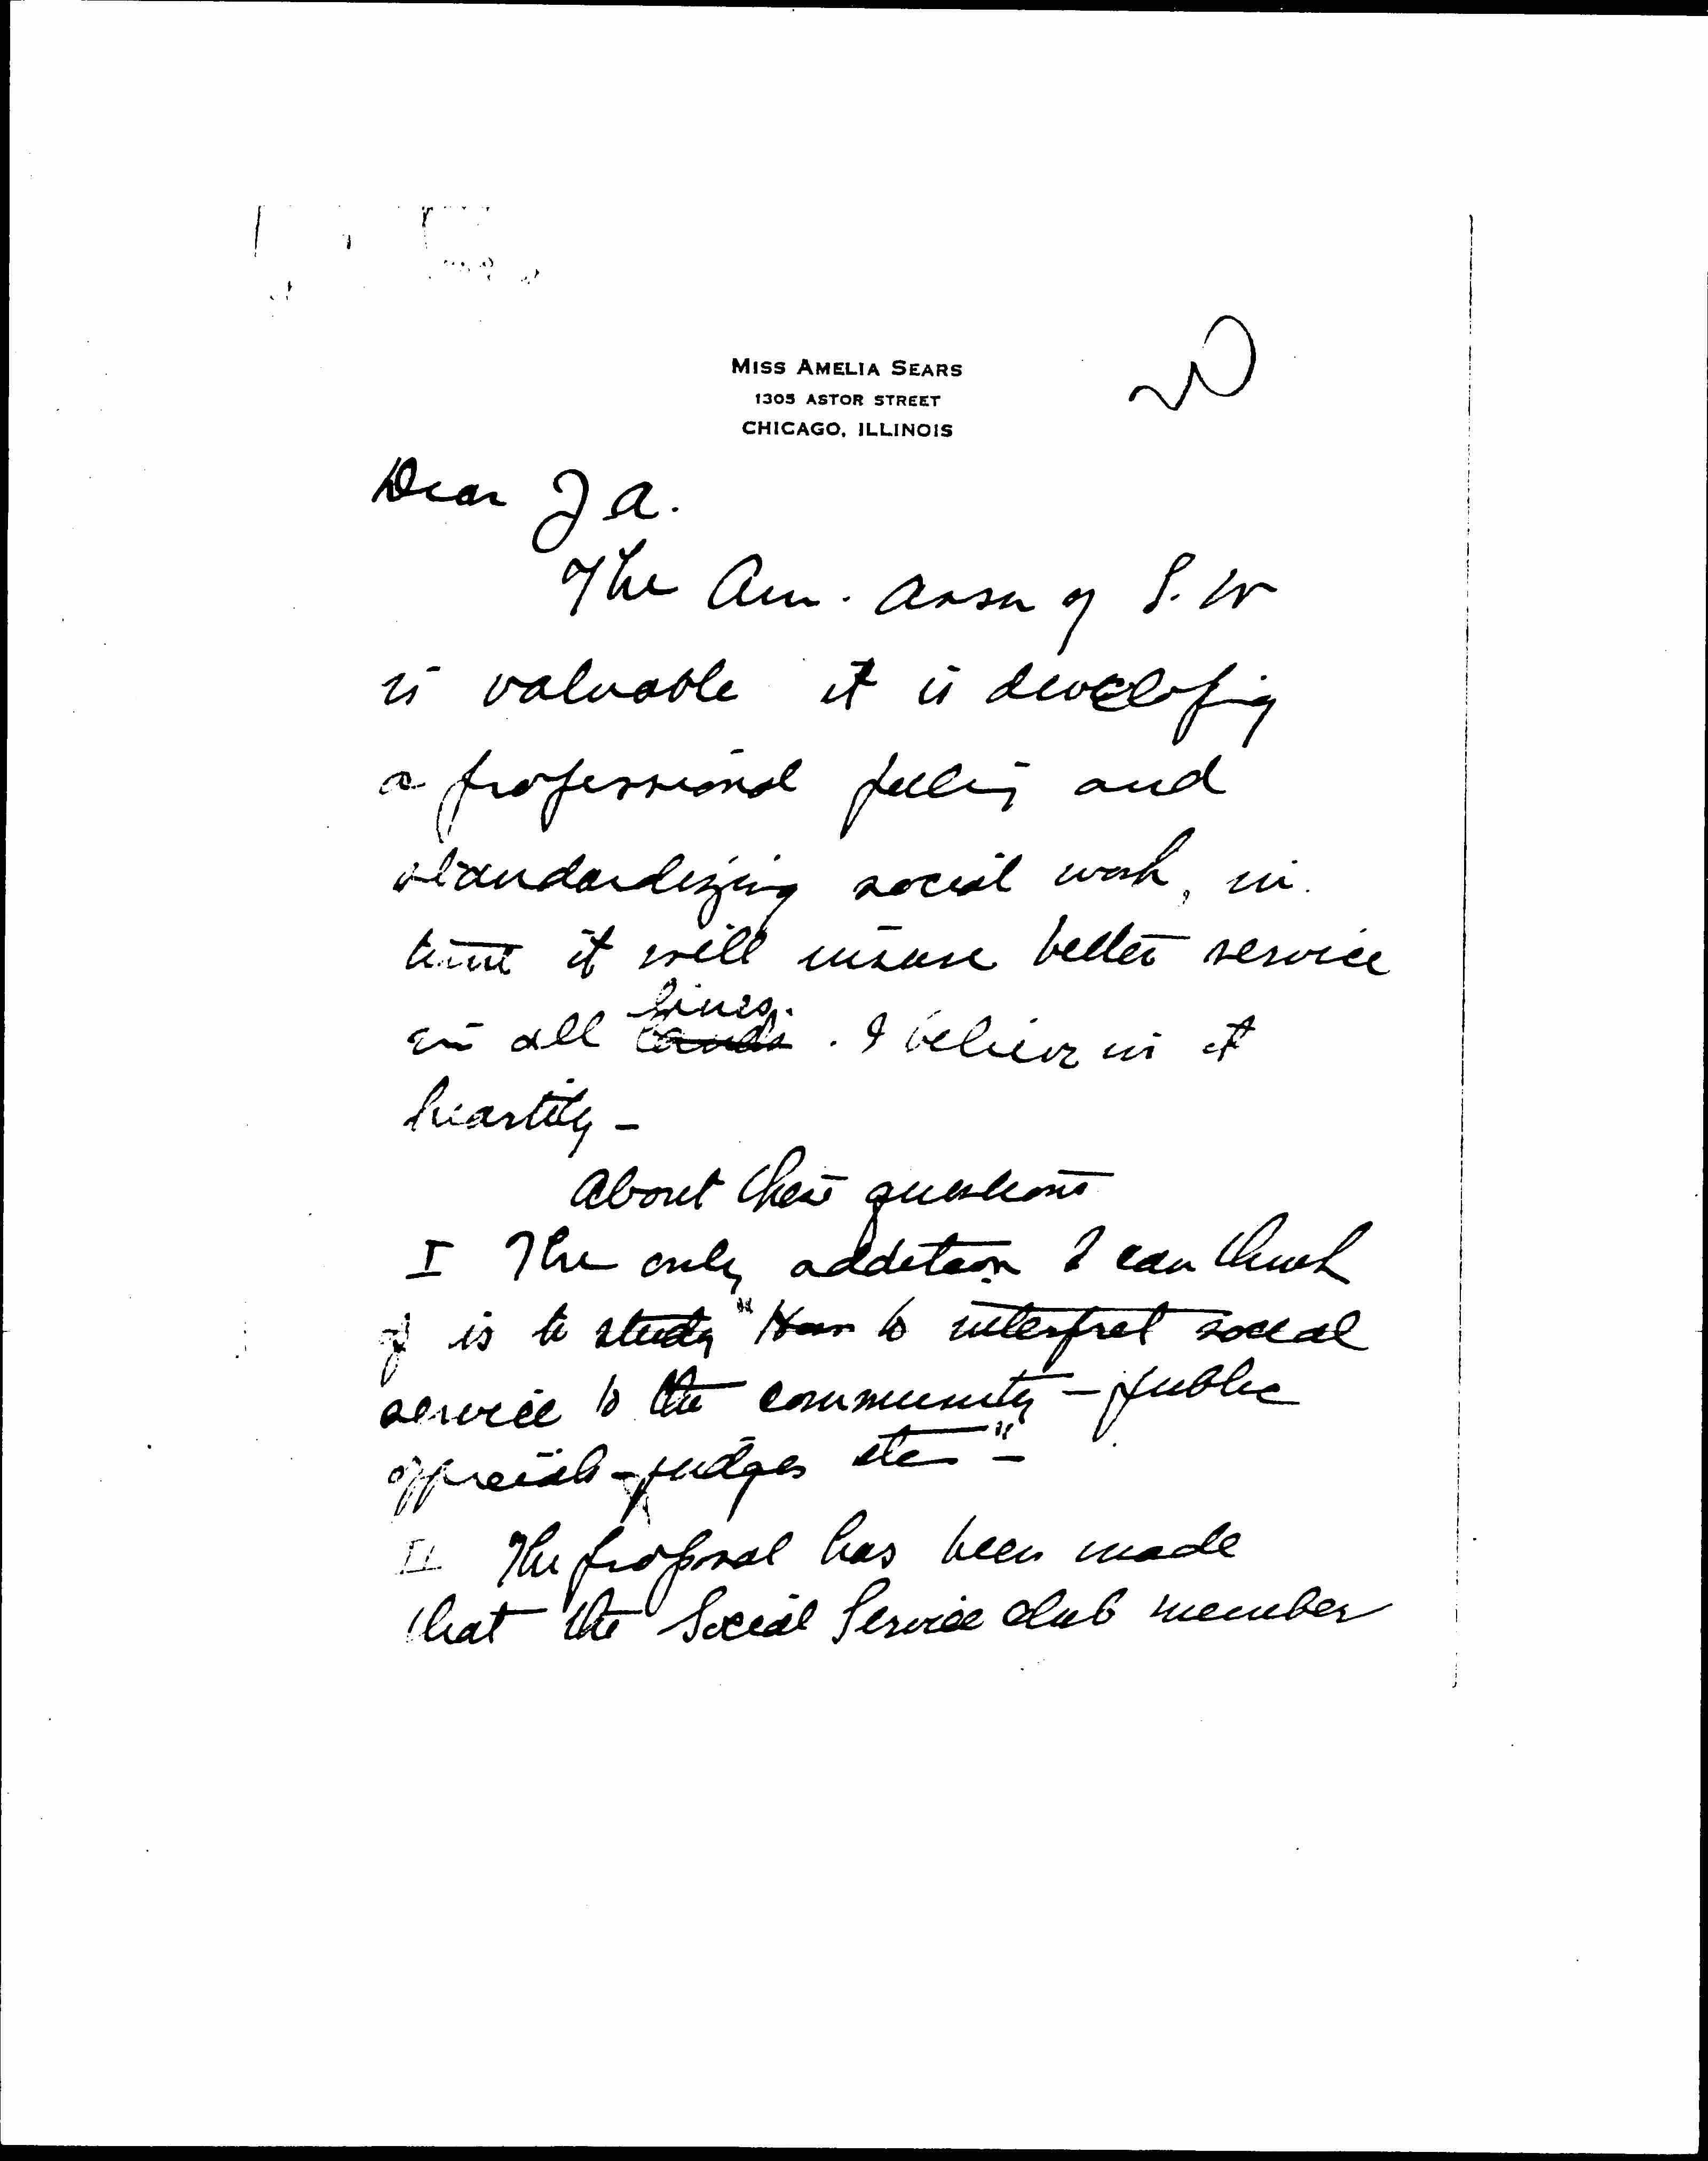 MISS AMELIA SEARS
1305 ASTOR STREET
CHICAGO, ILLINOIS
Dear J A.
The Am. Assn of S. W
is valuable it is developing
a professional feeling and
standardizing social work, in
time it will insure better service
in all lines. I believe in it
heartily -
About these questions
I The only addition I can think
of is to study "How to interpret social
service to the community - public
officials - judges etc" -
II The proposal has been made
that the Social Service club member